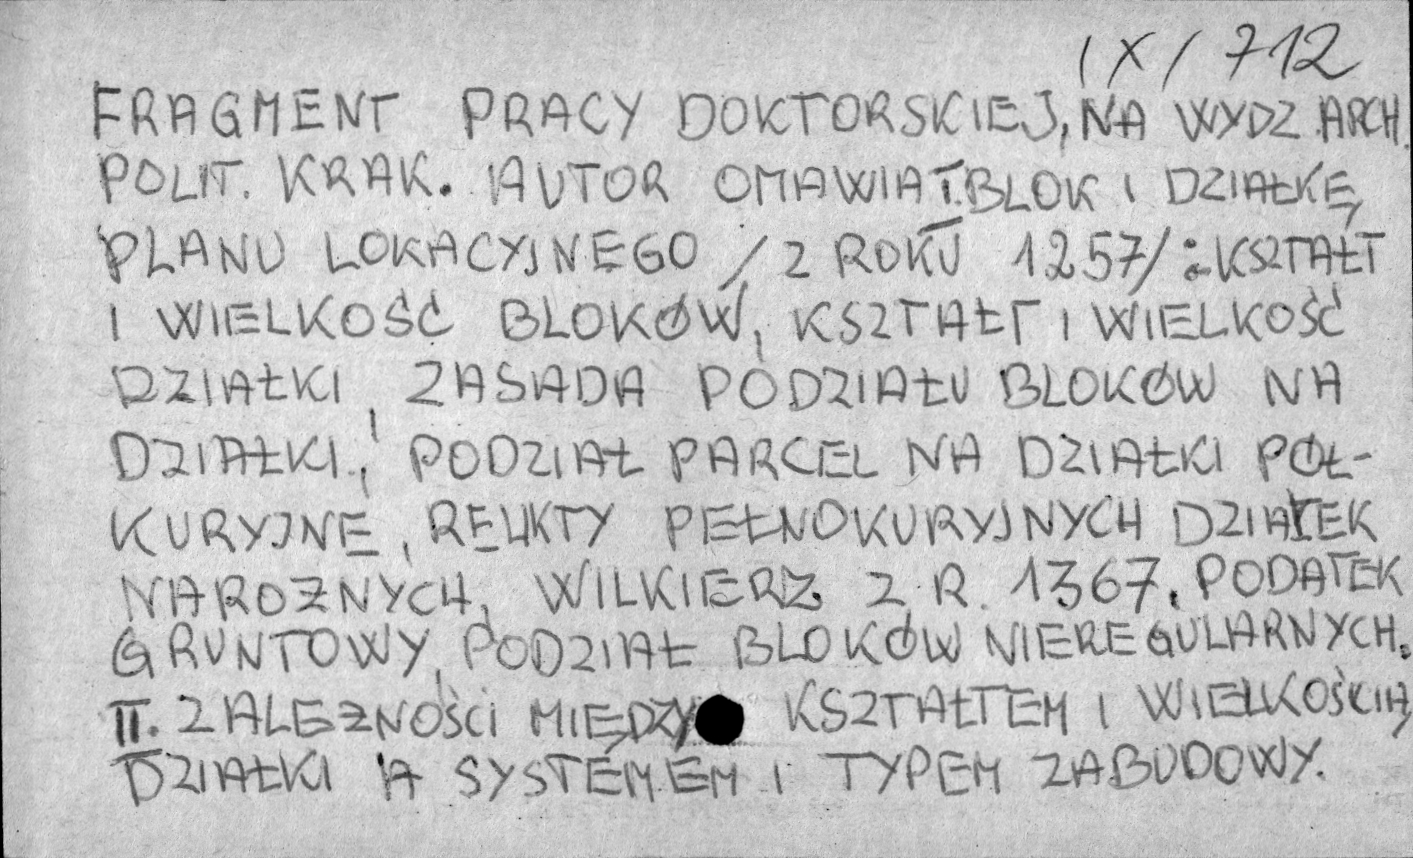 IX/712
FRAGMENT PRACY DOKTORSKIEJ, NA WYDZ. ARCH.
POLIT. KRAK. AUTOR OMAWIA I. BLOK I DZIAŁKĘ
PLANU LOKACYJNEGO /Z ROKU 1257/: KSZTAŁT
I WIELKOŚĆ BLOKÓW, KSZTAŁT I WIELKOŚĆ
DZIAŁKI, ZASADA PODZIAŁU BLOKÓW NA
DZIAŁKI, PODZIAŁ PARCEL NA DZIAŁKI PÓŁ-
KURYJNE, RELIKTY PEŁNOKURYJNYCH DZIAŁEK
NAROŻNYCH, WILKIERZ Z R. 1367, PODATEK
GRUNTOWY, PODZIAŁ BLOKÓW NIEREGULARNYCH.
II. ZALEŻNOŚCI MIĘDZY KSZTAŁTEM I WIELKOŚCIĄ
DZIAŁKI A SYSTEMEM I TYPEM ZABUDOWY.